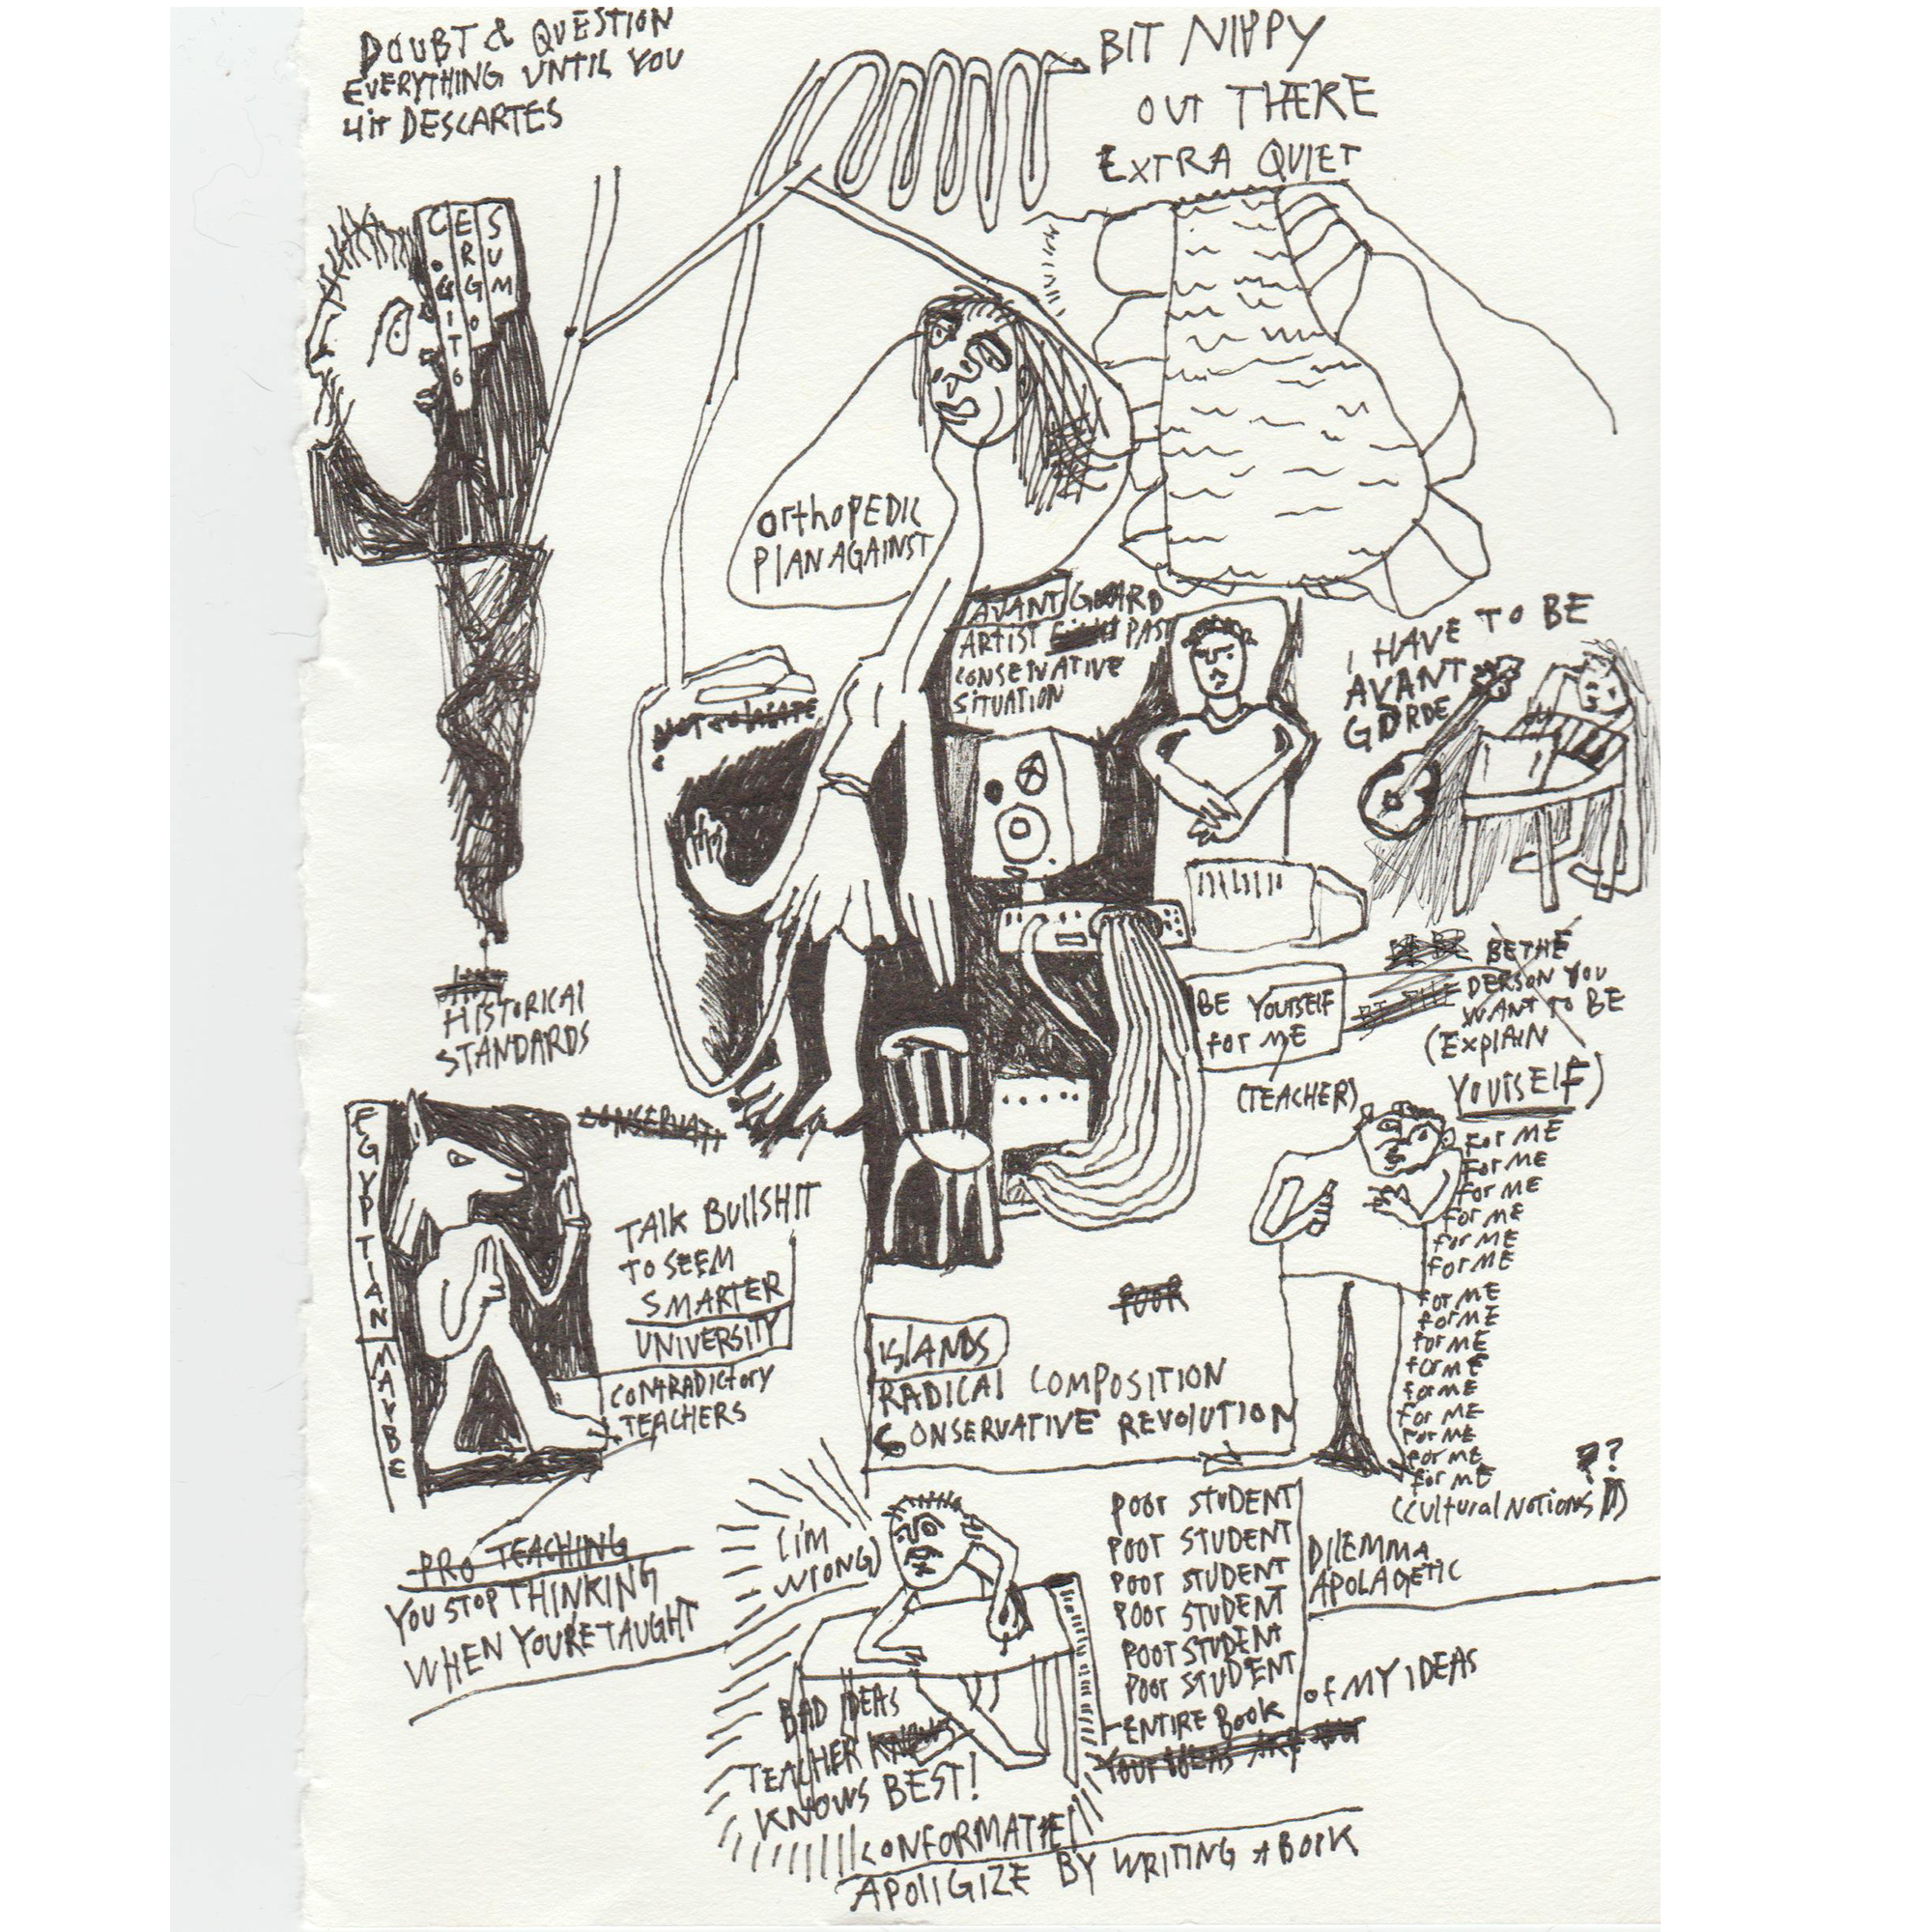 DOUBT & QUESTION
EVERYTHING UNTIL YOU
HIT DESCARTES
BIT NIPPY
OUT THERE
EXTRA QUIET
COGITO
ERGO
SUM
OrthoPEDIC
PLAN AGAINST
AVANT GUARD
ARTIST PAST
CONSERVATIVE
SITUATION
I HAVE TO BE
AVANT
GARDE
HISTORICAL
STANDARDS
BE YOURSELF
for ME
(TEACHER)
BE THE
PERSON YOU
WANT TO BE
(EXPLAIN
YOURSELF)
for ME
for ME
for ME
for ME
for ME
for ME
for ME
for ME
for ME
for ME
for ME
for ME
for ME
for ME
for ME
(Cultural NOTIONS ??)
EGYPTIAN MAYBE
CONSERVATI
TALK BULLSHIT
TO SEEM
SMARTER
UNIVERSITY
CONTRADICTORY
TEACHERS
POOR
ISLANDS
RADICAL COMPOSITION
CONSERVATIVE REVOLUTION
PRO TEACHING
YOU STOP THINKING
WHEN YOU'RE TAUGHT
(I'M
WRONG)
POOR STUDENT
POOR STUDENT
POOR STUDENT
POOR STUDENT
POOR STUDENT
POOR STUDENT
ENTIRE BOOK
of MY IDEAS
YOUR IDEAS ARE
DILEMMA
APOLAGETIC
BAD IDEAS
TEACHER KNOWS
KNOWS BEST!
CONFORMATE
APOLIGIZE BY WRITING A BOOK